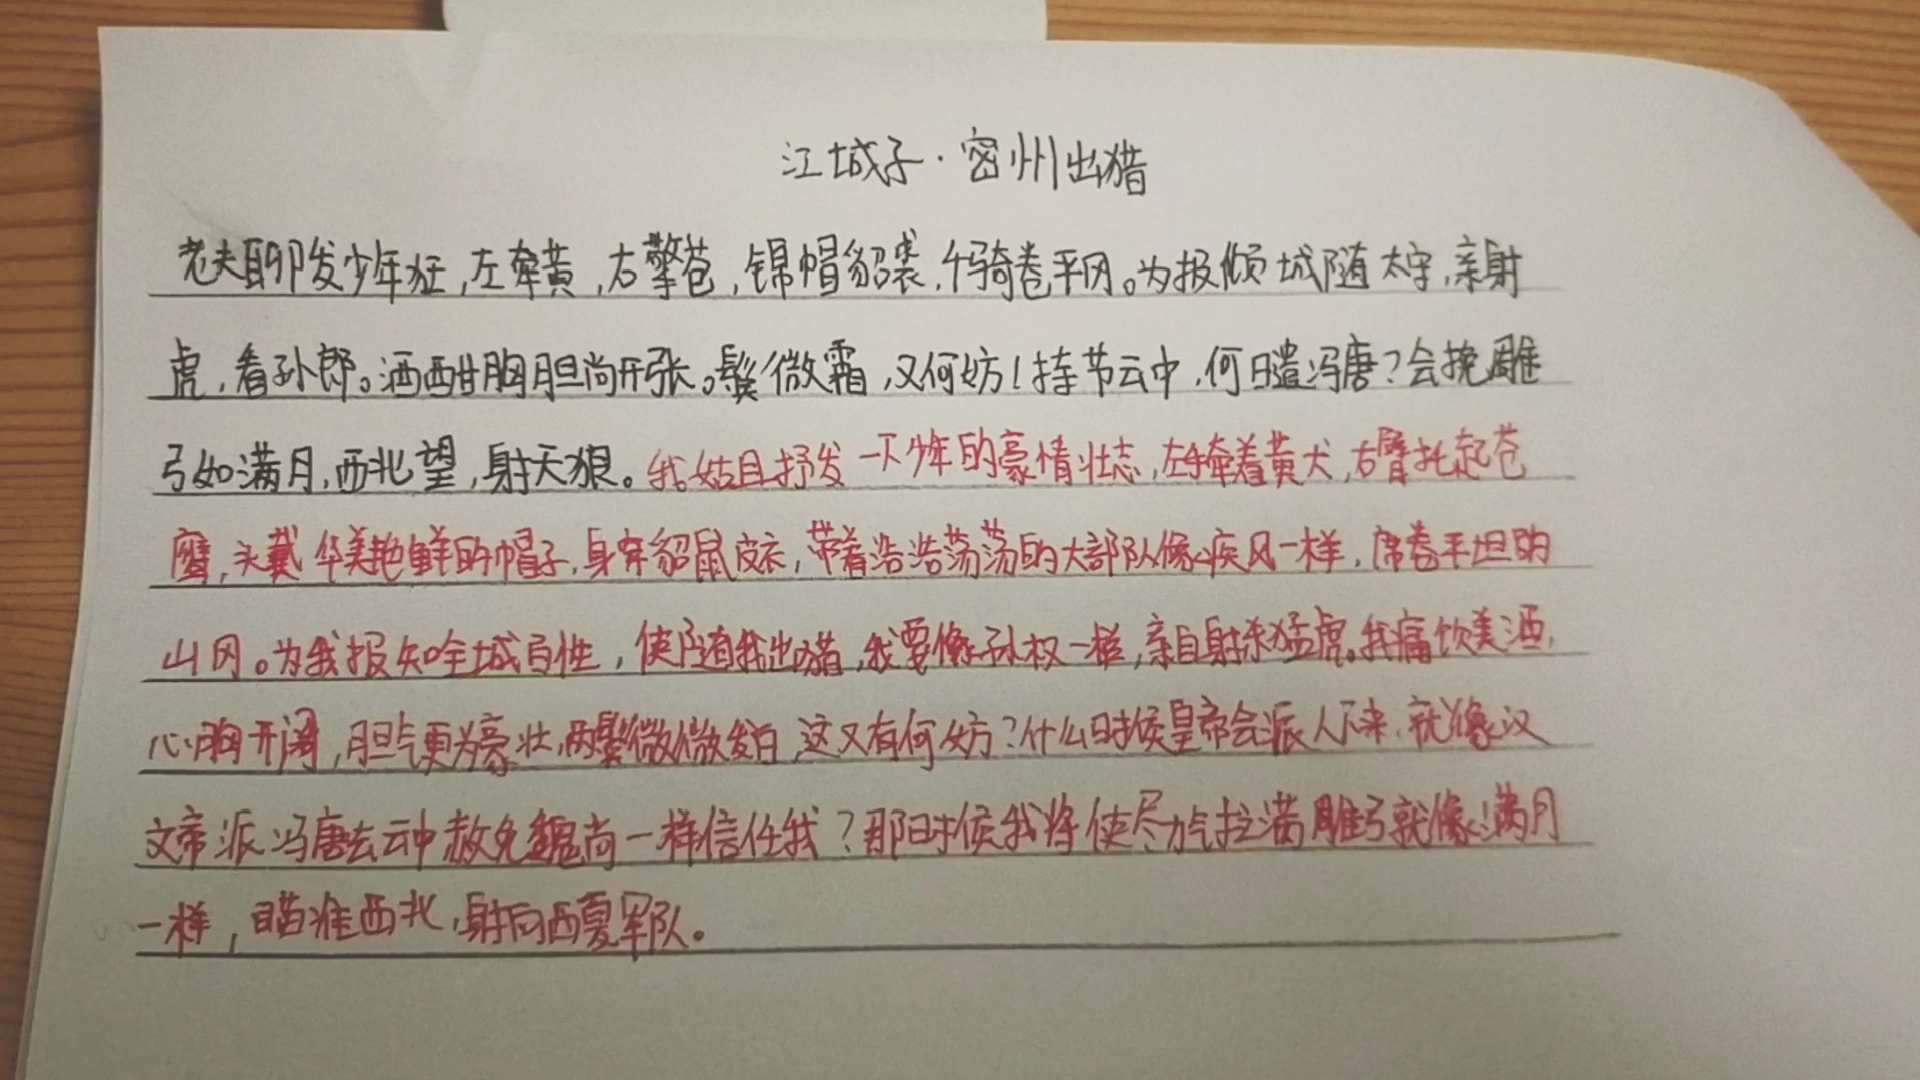 江城子·密州出猎
老夫聊发少年狂,左牵黄,右擎苍,锦帽貂裘,千骑卷平冈。为报倾城随太守,亲射
虎,看孙郎。酒酣胸胆尚开张。鬓微霜,又何妨!持节云中,何日遣冯唐?会挽雕
弓如满月,西北望,射天狼。我姑且抒发一下少年的豪情壮志,左手牵着黄犬,右臂托起苍
鹰,头戴华美艳鲜的帽子,身穿貂鼠皮衣,带着浩浩荡荡的大部队像疾风一样,席卷平坦的
山冈。为我报知全城百姓,使随我出猎,我要像孙权一样,亲自射杀猛虎。我痛饮美酒,
心胸开阔,胆气更为豪壮,两鬓微微发白,这又有何妨?什么时候皇帝会派人下来,就像汉
文帝派冯唐去云中赦免魏尚一样信任我?那时候我将使尽力气拉满雕弓就像满月
一样,瞄准西北,射向西夏军队。